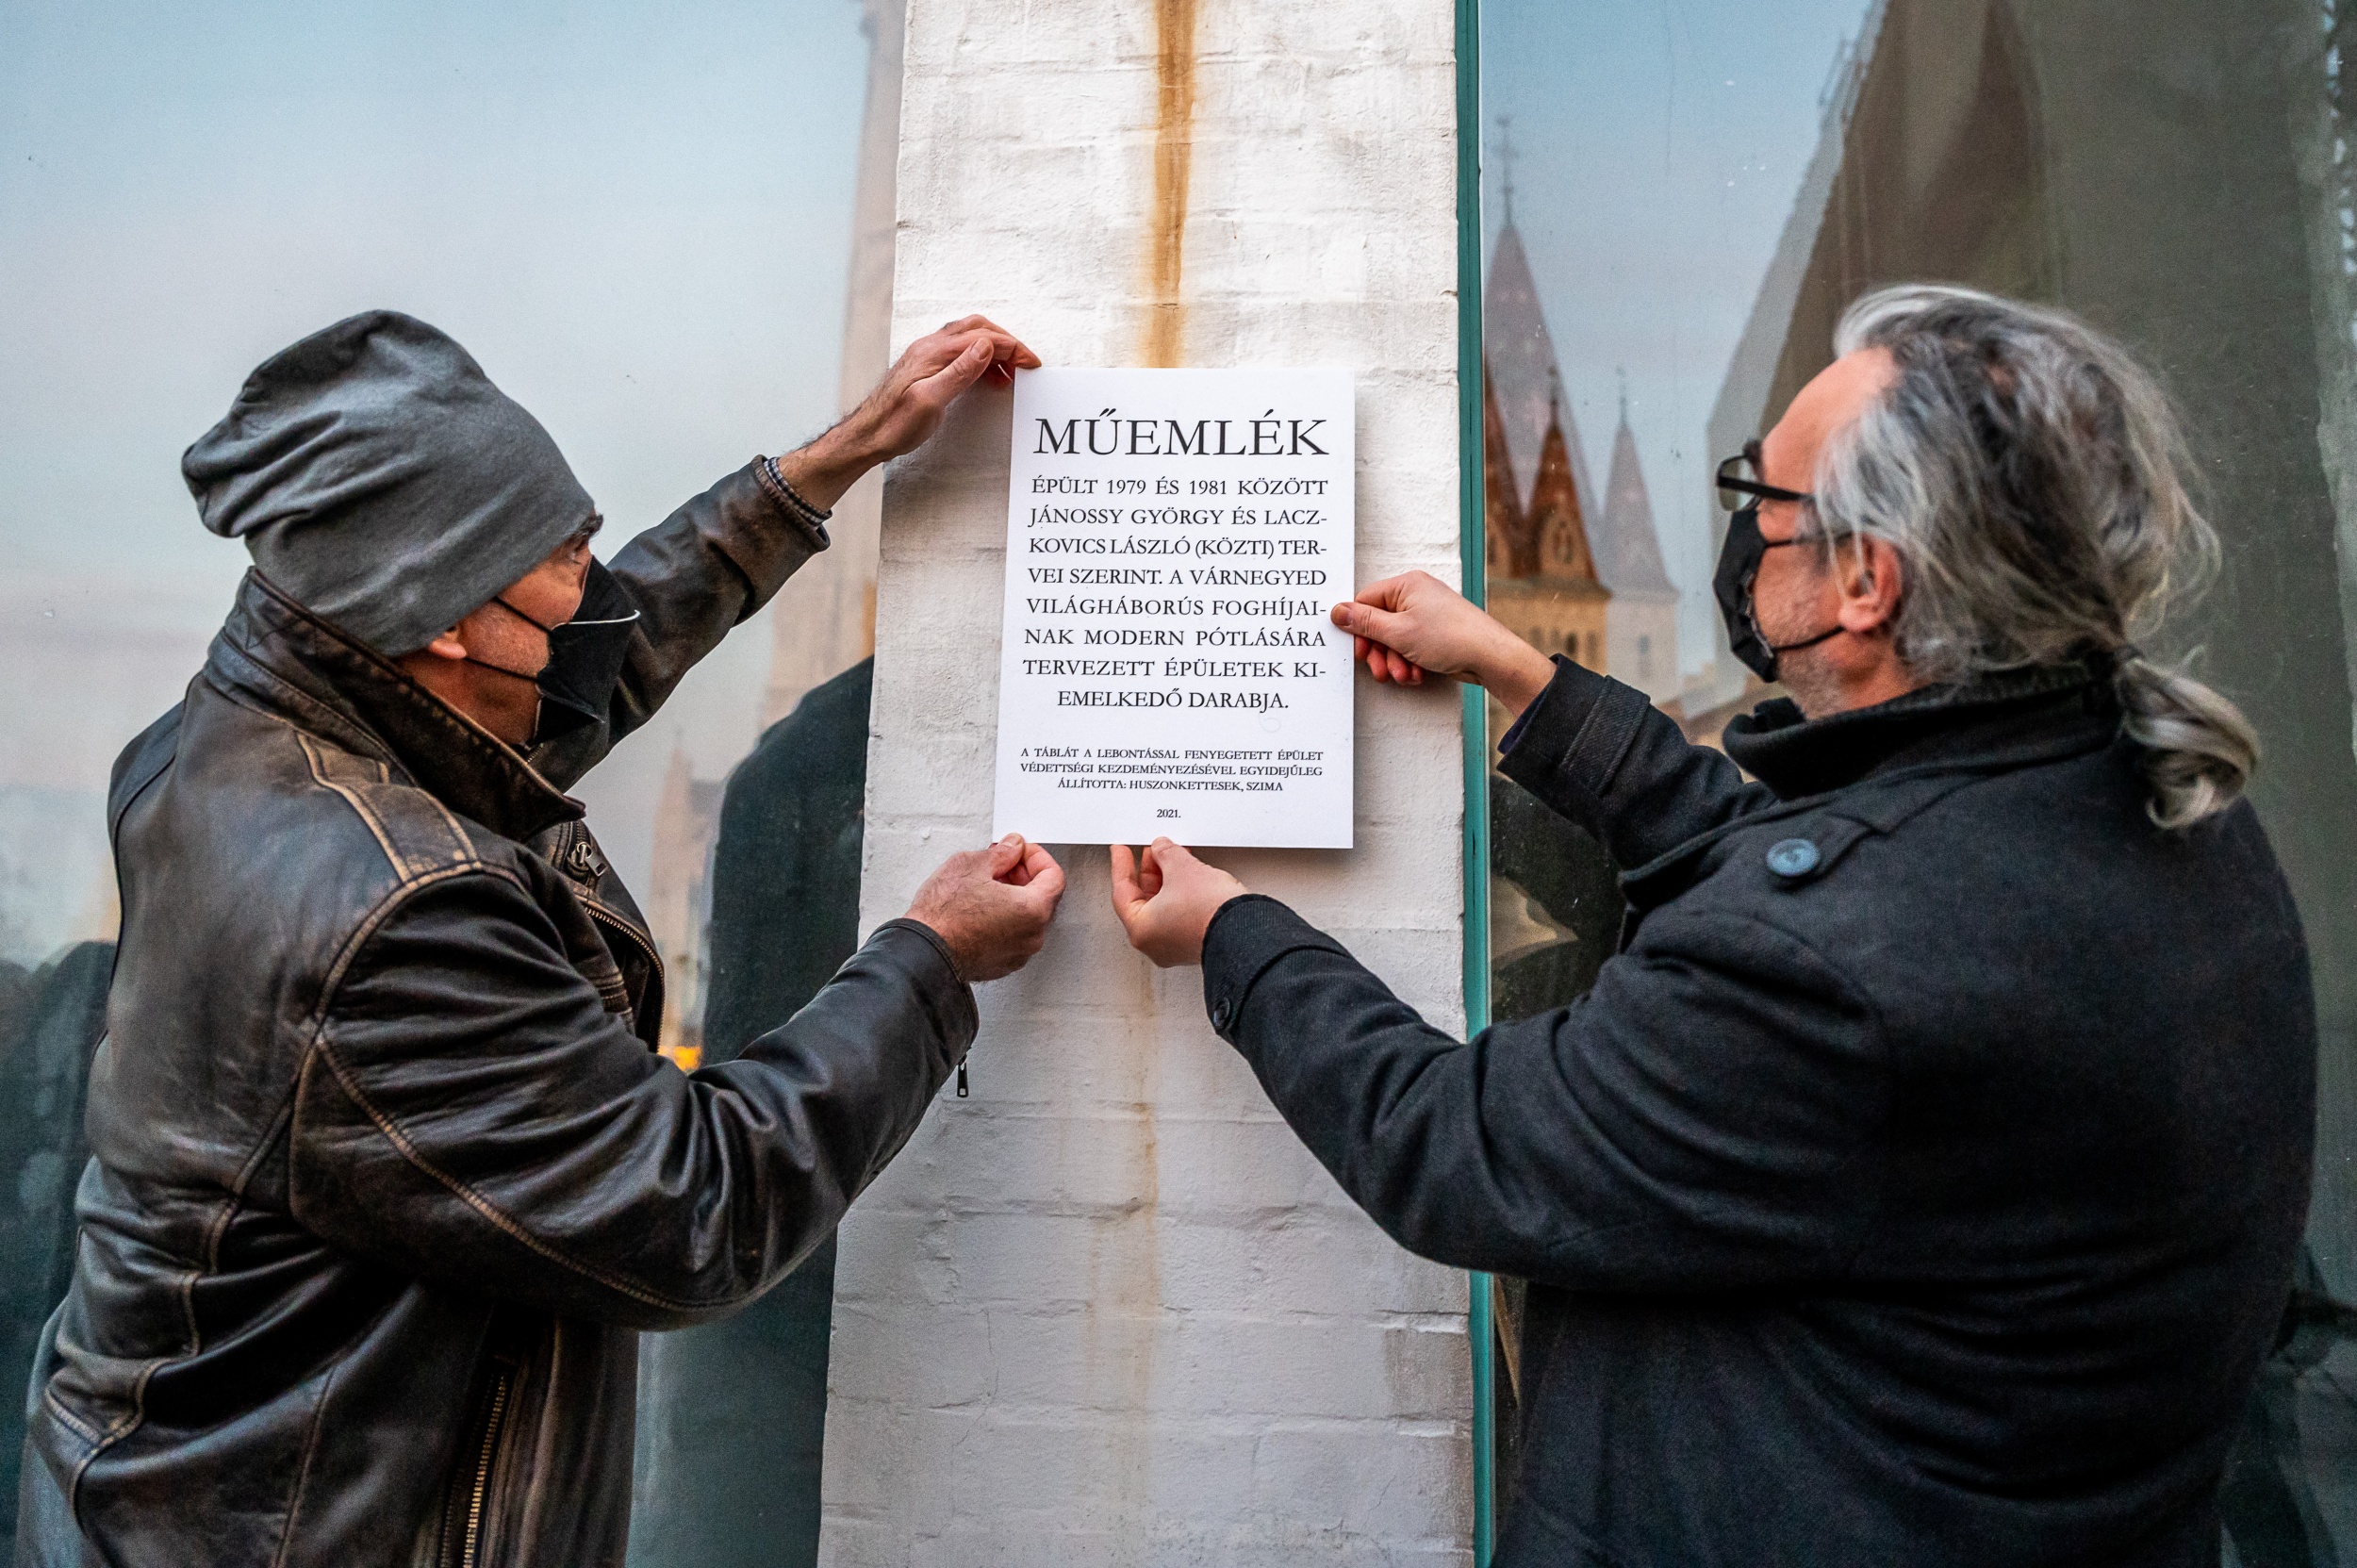 MŰEMLÉK
ÉPÜLT 1979 ÉS 1981 KÖZÖTT
JÁNOSSY GYÖRGY ÉS LACZ-
KOVICS LÁSZLÓ (KÖZTI) TER-
VEI SZERINT. A VÁRNEGYED
VILÁGHÁBORÚS FOGHÍJAI-
NAK MODERN PÓTLÁSÁRA
TERVEZETT ÉPÜLETEK KI-
EMELKEDŐ DARABJA.
A TÁBLÁT A LEBONTÁSSAL FENYEGETETT ÉPÜLET
VÉDETTSÉGI KEZDEMÉNYEZÉSÉVEL EGYIDEJŰLEG
ÁLLÍTOTTA: HUSZONKETTESEK, SZIMA
2021.